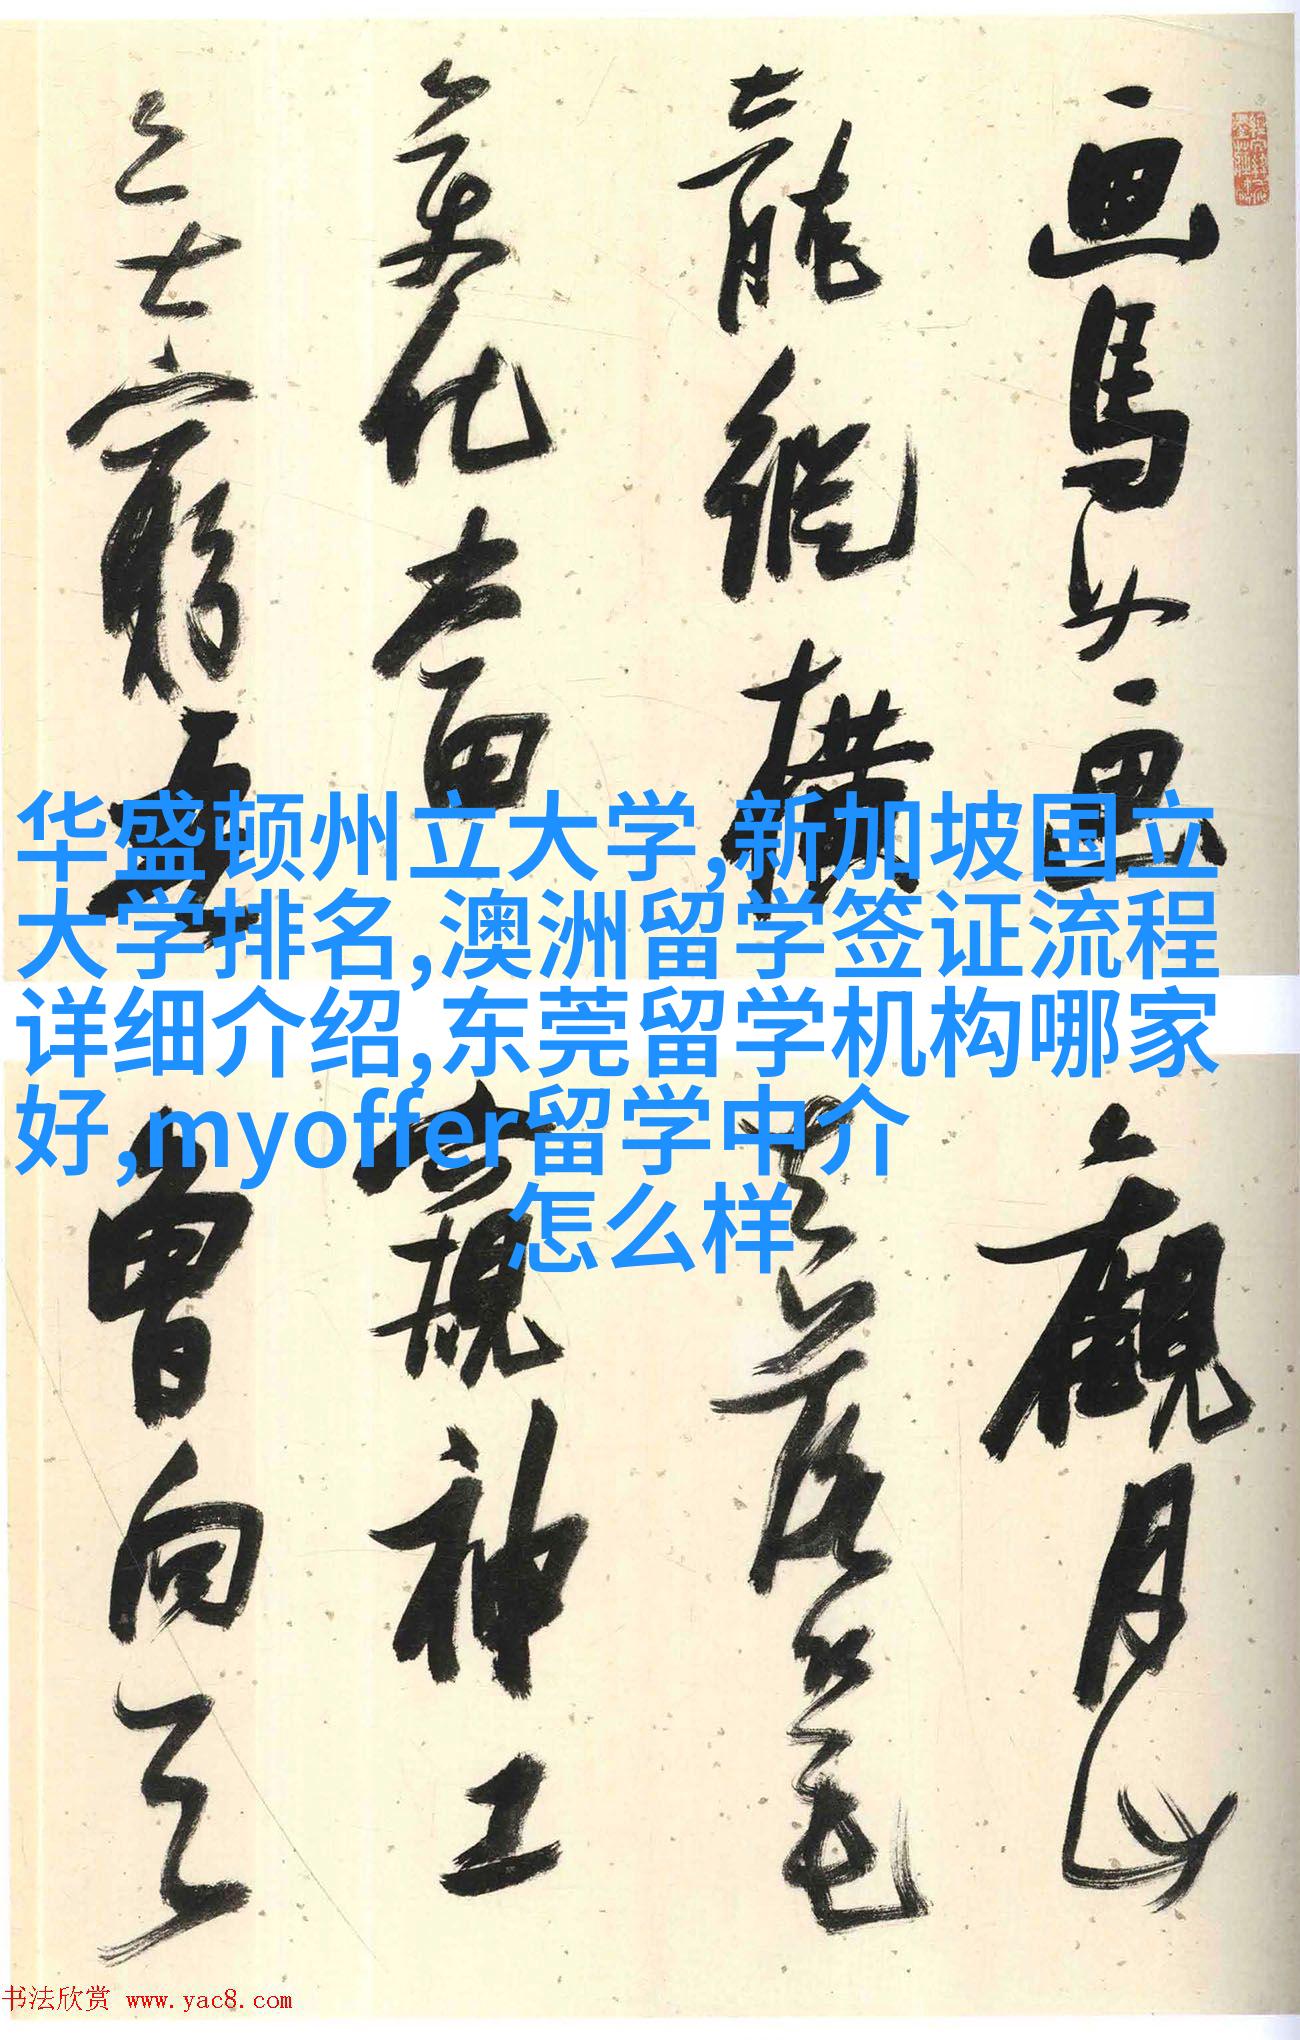 華盛顿州立大学,新加坡国立
大学排名,澳洲留学签证流程
详细介绍,东莞留学机构哪家
好,myoffer留学中介
怎么样
画馬 画
龍縱橫
变化当
觀月山
落笔
窺神工
曾向天
书法欣赏 www.yac8.com